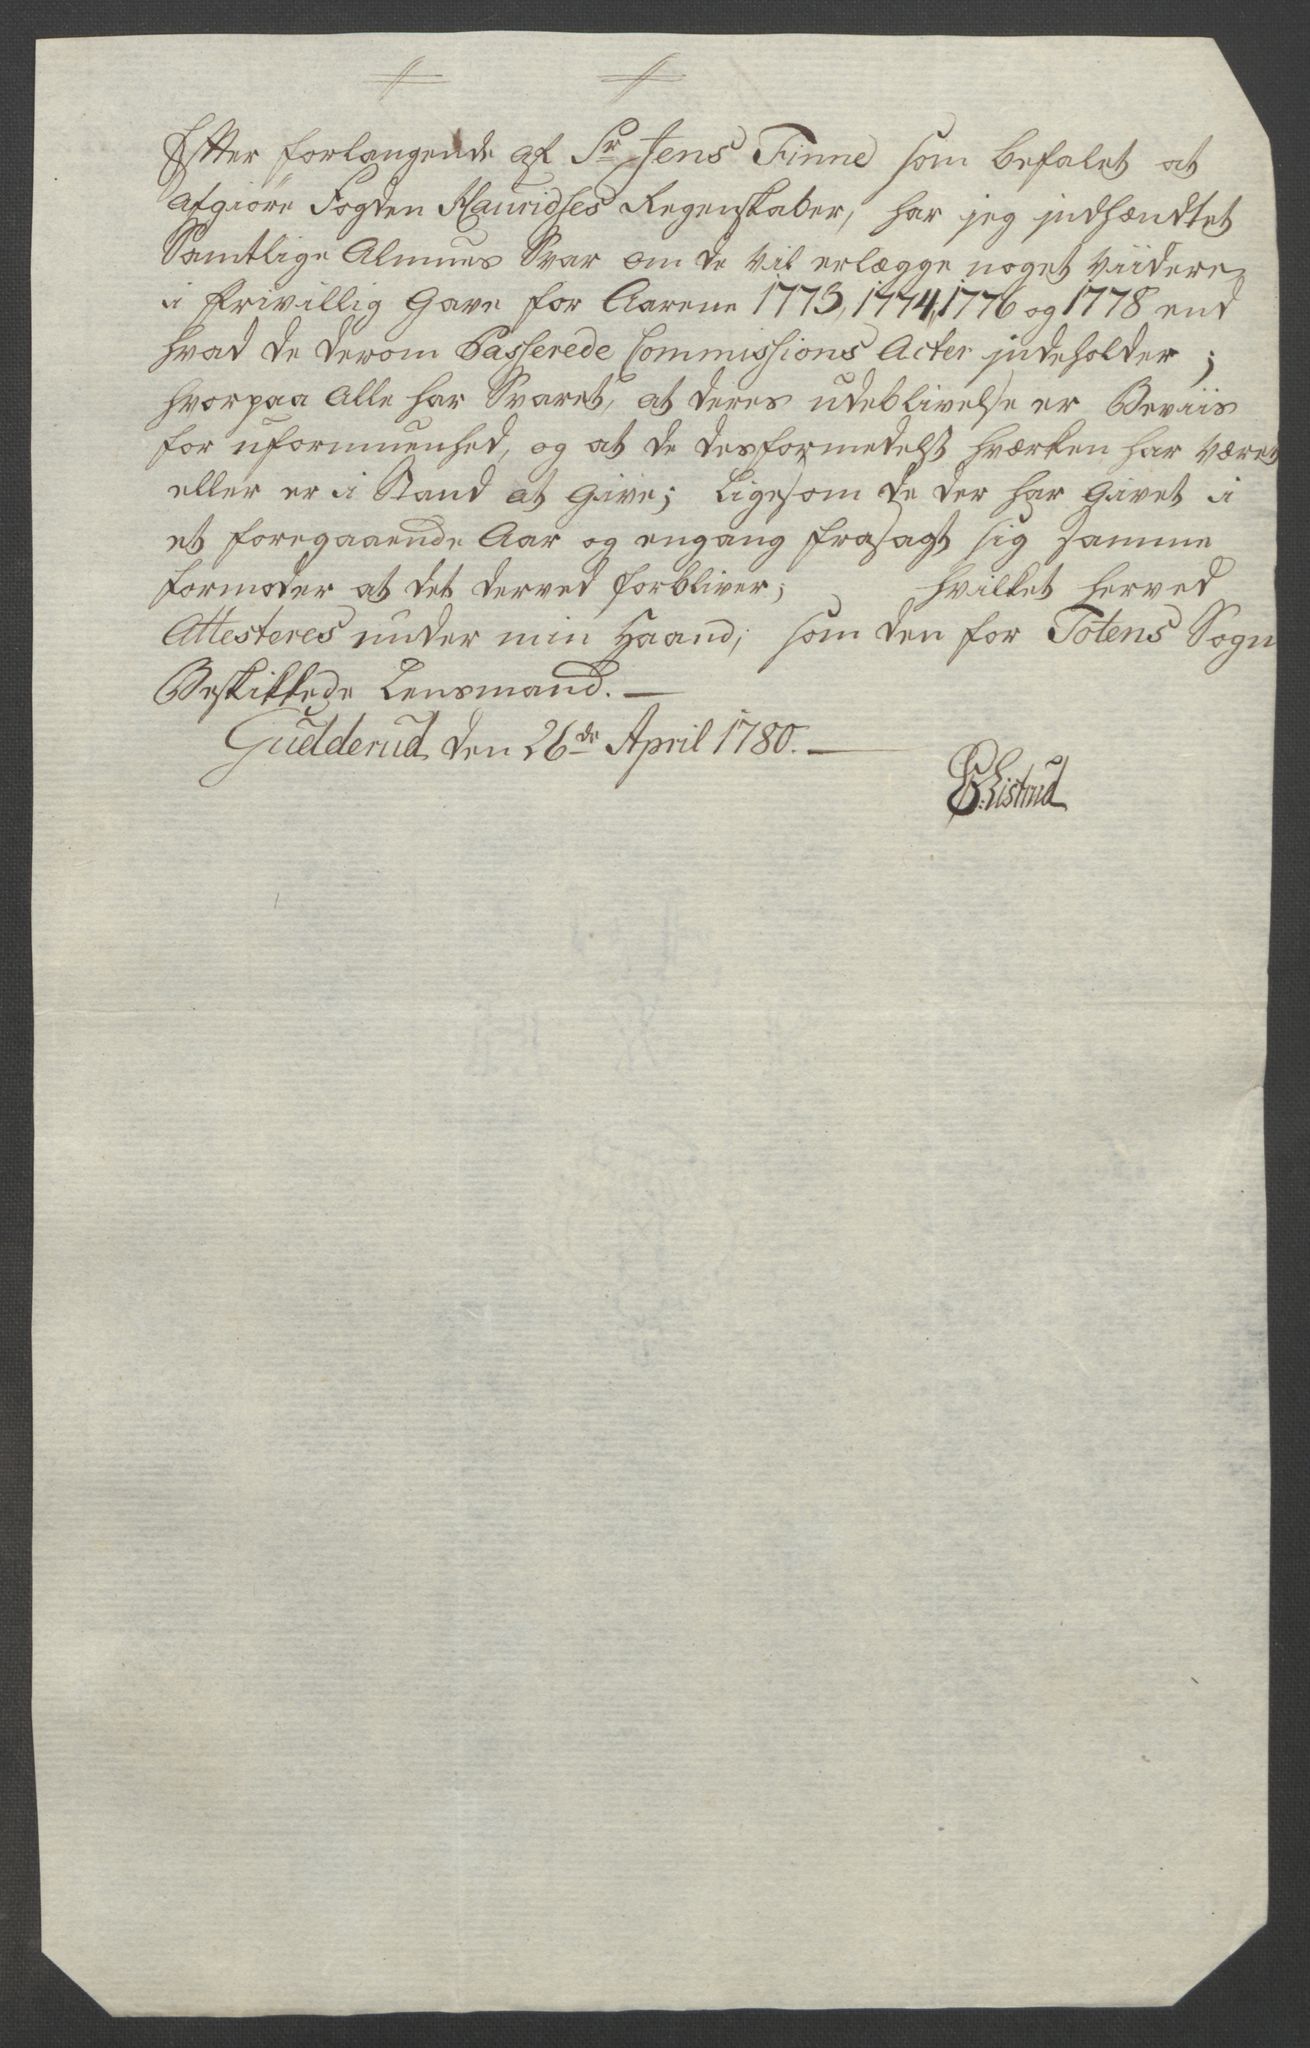 Efter forlangende af Sr Jens Finne som befalet at
afgiöre Fogden Hauridses Regenskaber, har jeg indhændtet
Samtlige Almues Svar om de vil erlægge noget viidere
i frivillig Gave for Aarene 1773, 1774, 1776 og 1778 end
hvad de derom Passerede Commissions Acter indeholder;
hvorpaa Alle har Svaret, at deres udeblivelse er Beviis
for uformuenhed, og at de desformedelst hværken har været
eller er i Stand at Give; Ligesom de der har Givet i
et foregaaende Aar og engang frasagt sig samme
formoder at det derved forbliver; hvilket herved
Attesteres under min Haand, som den for Totens Sogn
Beskikkede Lensmand.
Gudderud den 26de April 1780.
Ristrud